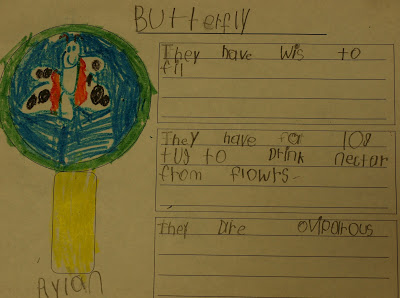 Butterfly
They have wis to
fli
They have for log
tug to Drink nectar
from flowrs
they are oviparous
Avian